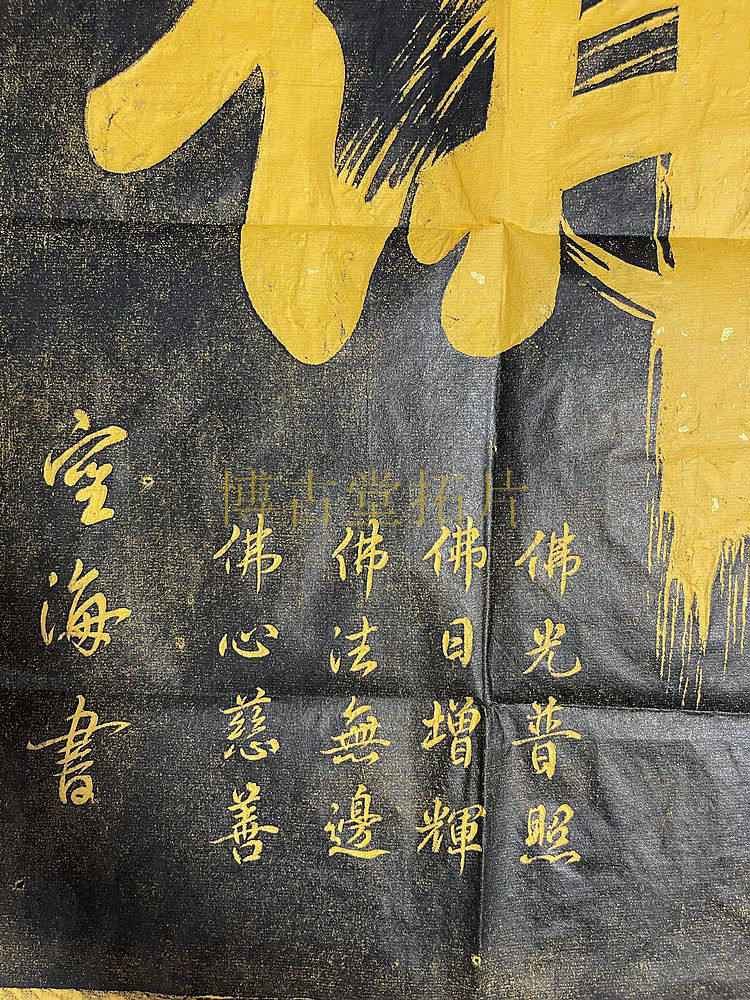 佛光普照
佛日增輝
佛法無邊
佛心慈善
空海書
博古堂拓片